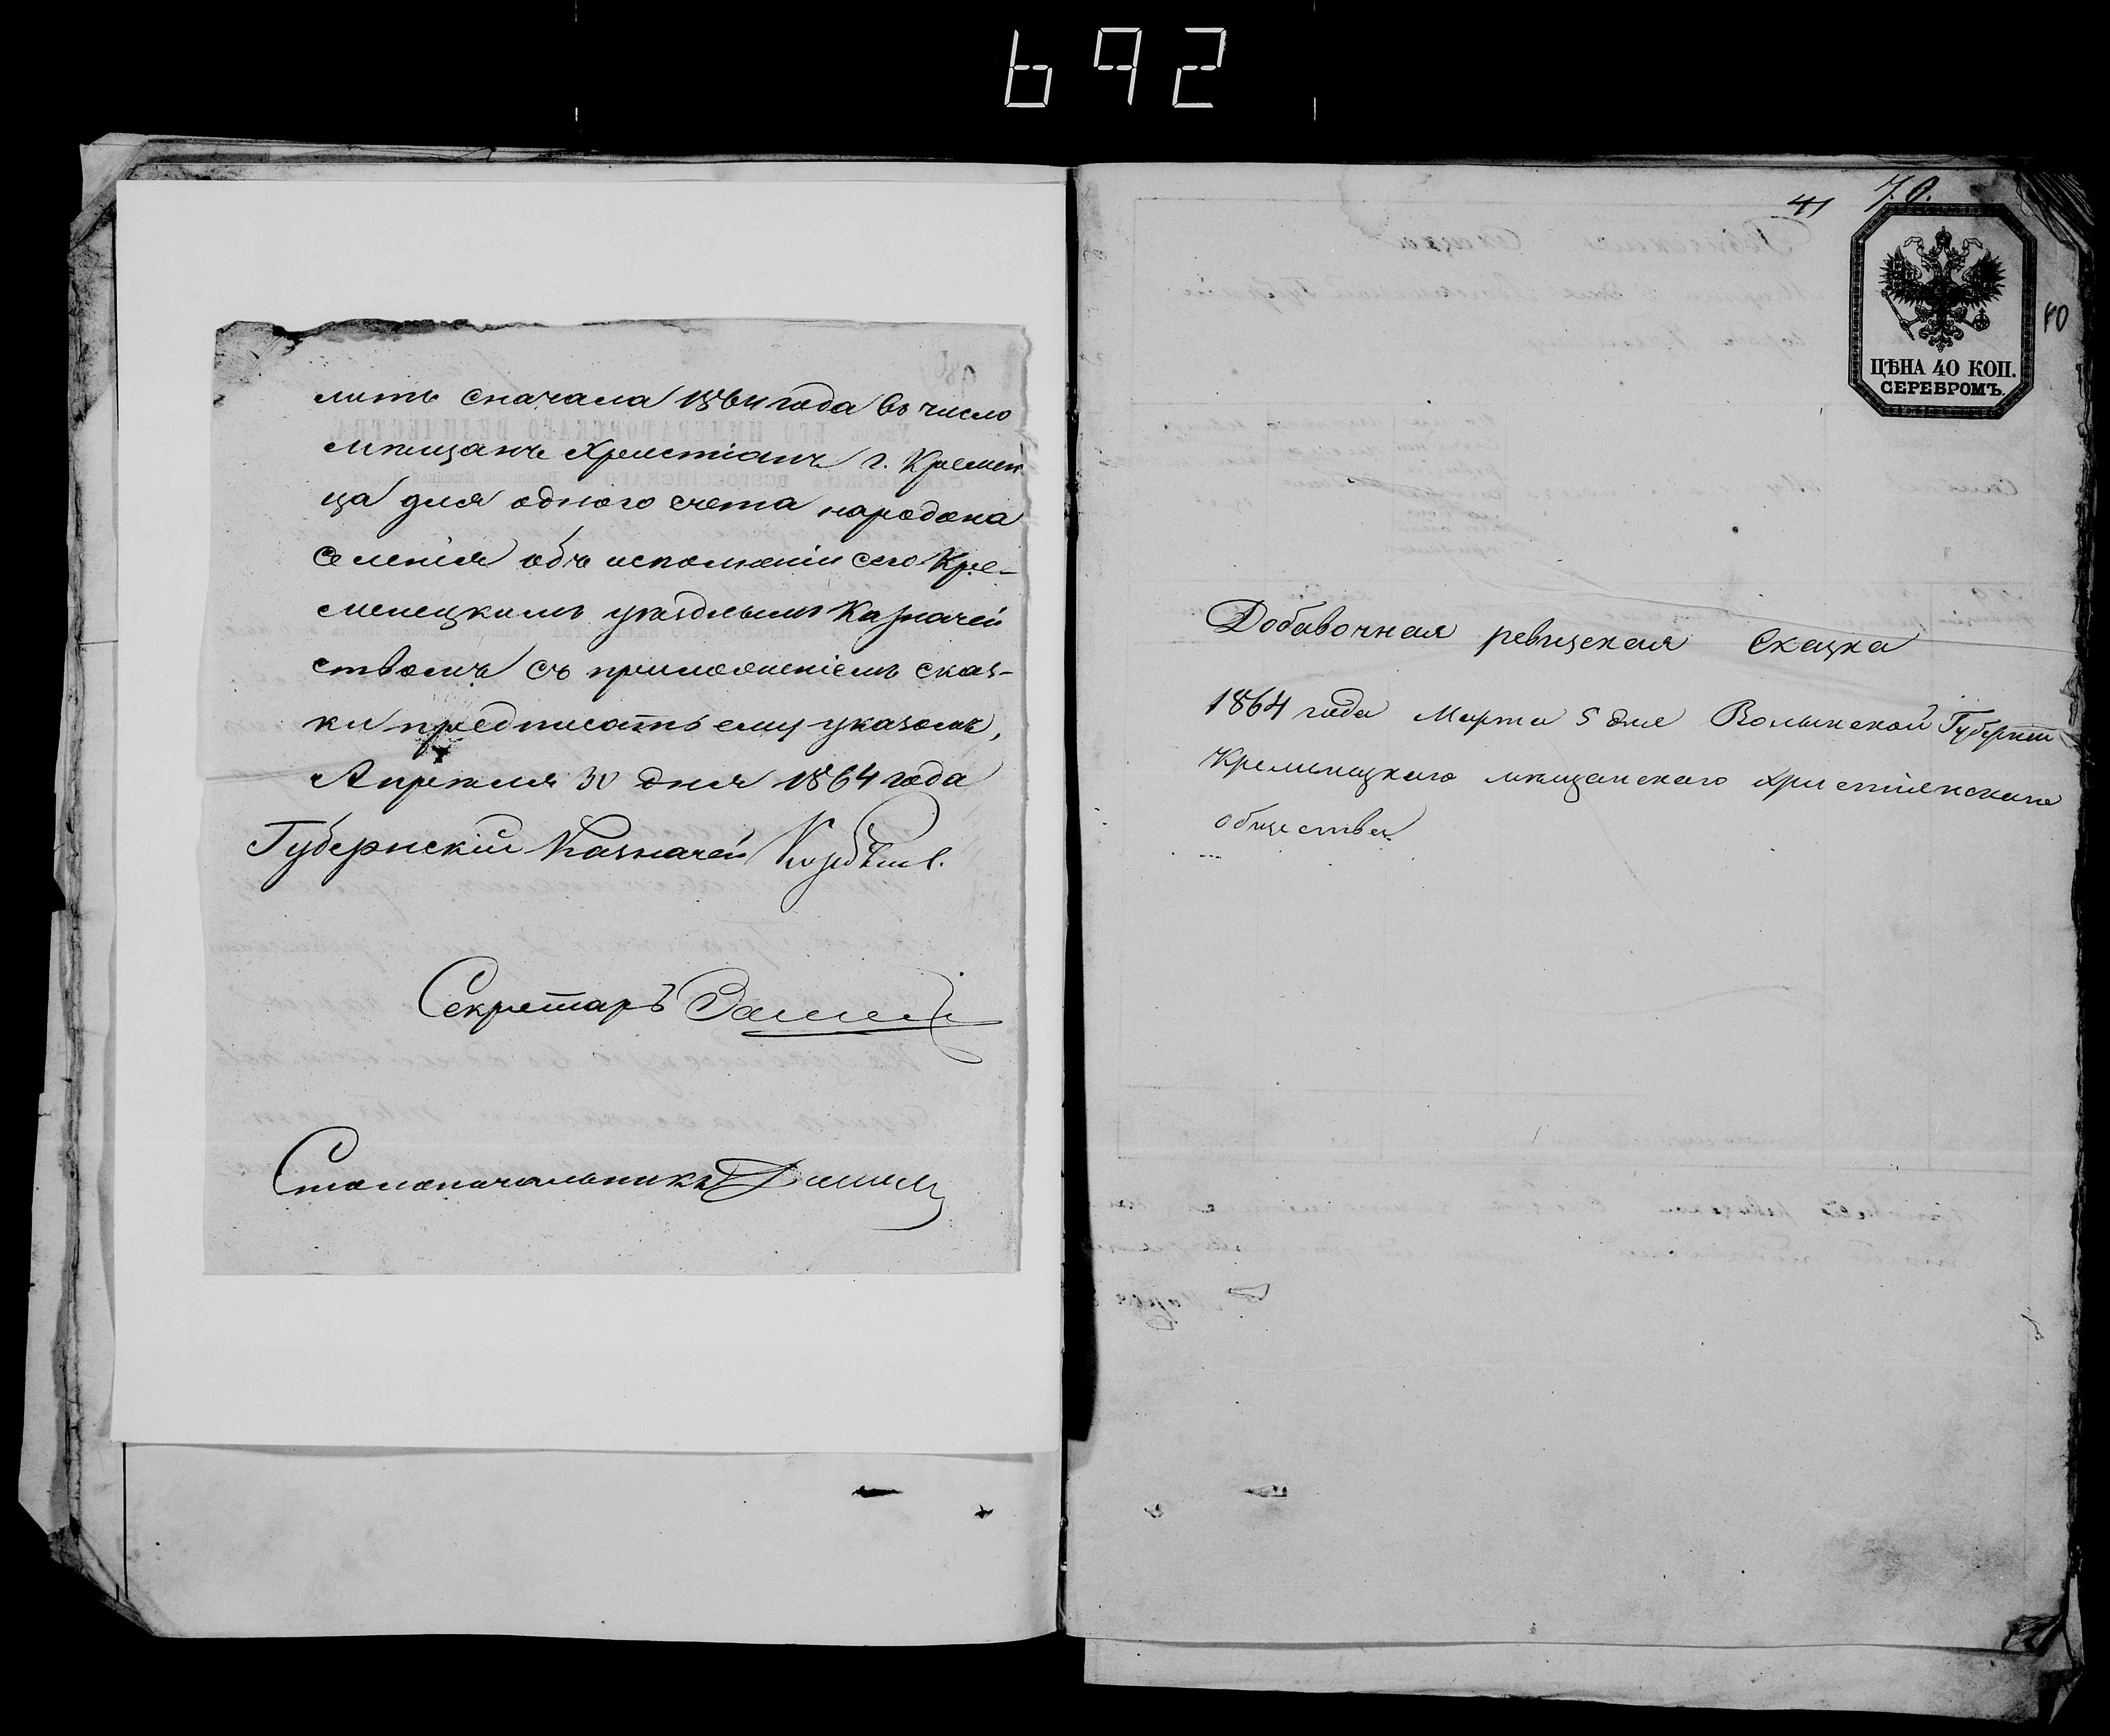 692
лить сначала 1864 года въ число
мѣщанъ Христіанъ г. Кремен
ца для одного счета народона
селенія объ исполненіи сего Кре-
менецкимъ уѣзднымъ Казначей
ствомъ съ приложеніемъ сказ-
ки предписать ему указомъ,
Апрѣля 30 дня 1864 года
Губернскій Казначей
Секретарь
Столоначальникъ
41 70.
ЦѢНА 40 КОП.
СЕРЕБРОМЪ.
70
Добавочная ревизская Сказка
1864 года Марта 5 дня Волынской Губерніи
Кременецкаго мѣщанскаго христіянскаго
общества